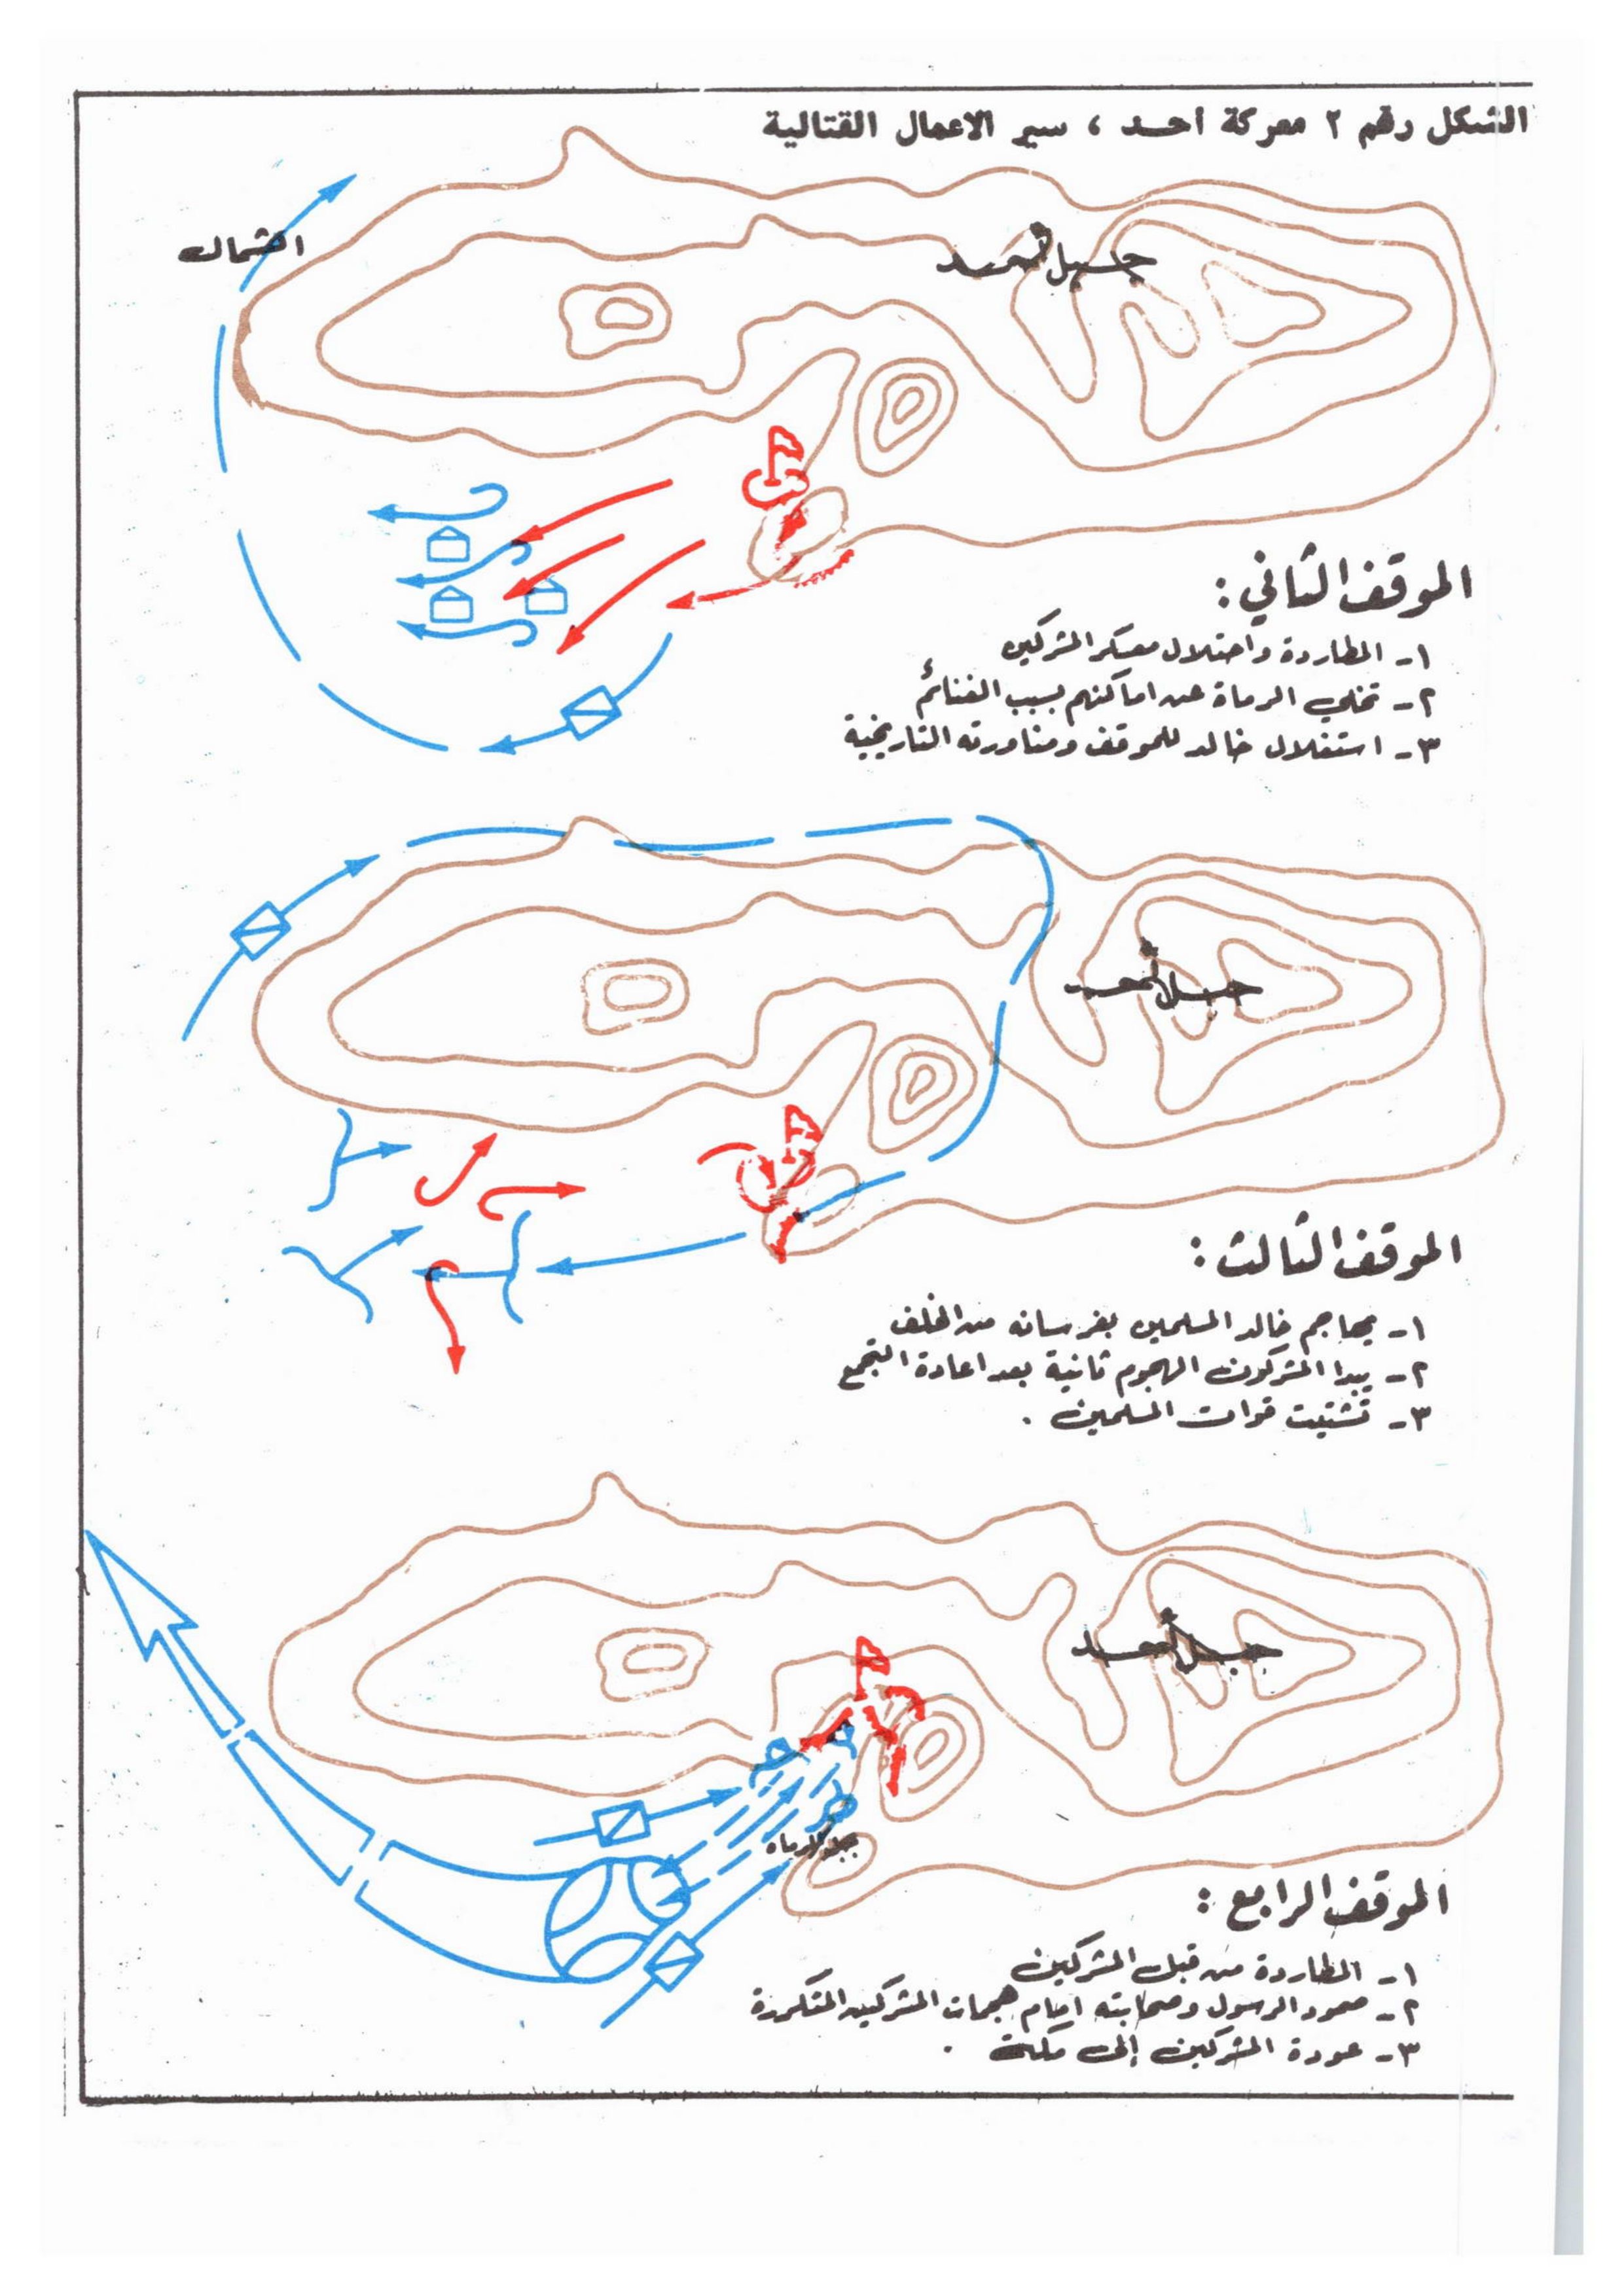 الشكل رقم ٢ معركة أحد ، سير الاعمال القتالية
الشمال
جبل أحد
الموقف الثاني :
١- المطاردة واحتلال معسكر المشركين
٢- تخلي الرماة عن اماكنهم بسبب الغنائم
٣- استغلال خالد للموقف ومناورته التاريخية
جبل أحد
الموقف الثالث :
١- يهاجم خالد المسلمين بفرسانه من الخلف
٢- يبدا المشركون الهجوم ثانية بعد اعادة التجمع
٣- تشتيت قوات المسلمين .
جبل أحد
جبل الرماه
الموقف الرابع :
١- المطاردة من قبل المشركين
٢- صمود الرسول وصحابته امام هجمات المشركين المتكررة
٣- عودة المشركين إلى مكة .